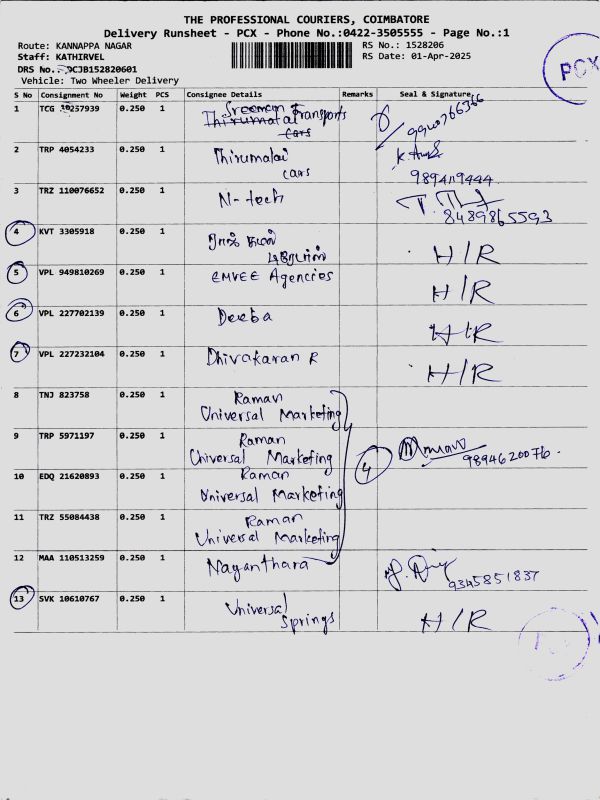 THE PROFESSIONAL COURIERS, COIMBATORE
Delivery Runsheet - PCX - Phone No.:0422-3505555 - Page No.:1
Route: KANNAPPA NAGAR
RS No.: 1528206
Staff: KATHIRVEL
RS Date: 01-Apr-2025
DRS No. CJB152820601
Vehicle: Two Wheeler Delivery
PCX
S No Consignment No Weight PCS Consignee Details Remarks Seal & Signature
1 TCG 257939 0.250 1 Transports
Thirumalai
cars
2 TRP 4054233 0.250 1 Thirumalai K.
cars 9894119444
3 TRZ 110076652 0.250 1 N-tech
8489865593
4 KVT 3305918 0.250 1 H/R
5 VPL 949810269 0.250 1 EMVEE Agencies H/R
6 VPL 227702139 0.250 1 Deeba H/R
7 VPL 227232104 0.250 1 Dhivakaran R H/R
8 TNJ 823758 0.250 1 Raman
Universal Marketing
9 TRP 5971197 0.250 1 Raman
Universal Marketing 4 9894620076
10 EDQ 21620893 0.250 1 Raman
Universal Marketing
11 TRZ 55084438 0.250 1 Raman
Universal Marketing
12 MAA 110513259 0.250 1 Nayanthara
9345851837
13 SVK 10610767 0.250 1 Universal
Springs H/R